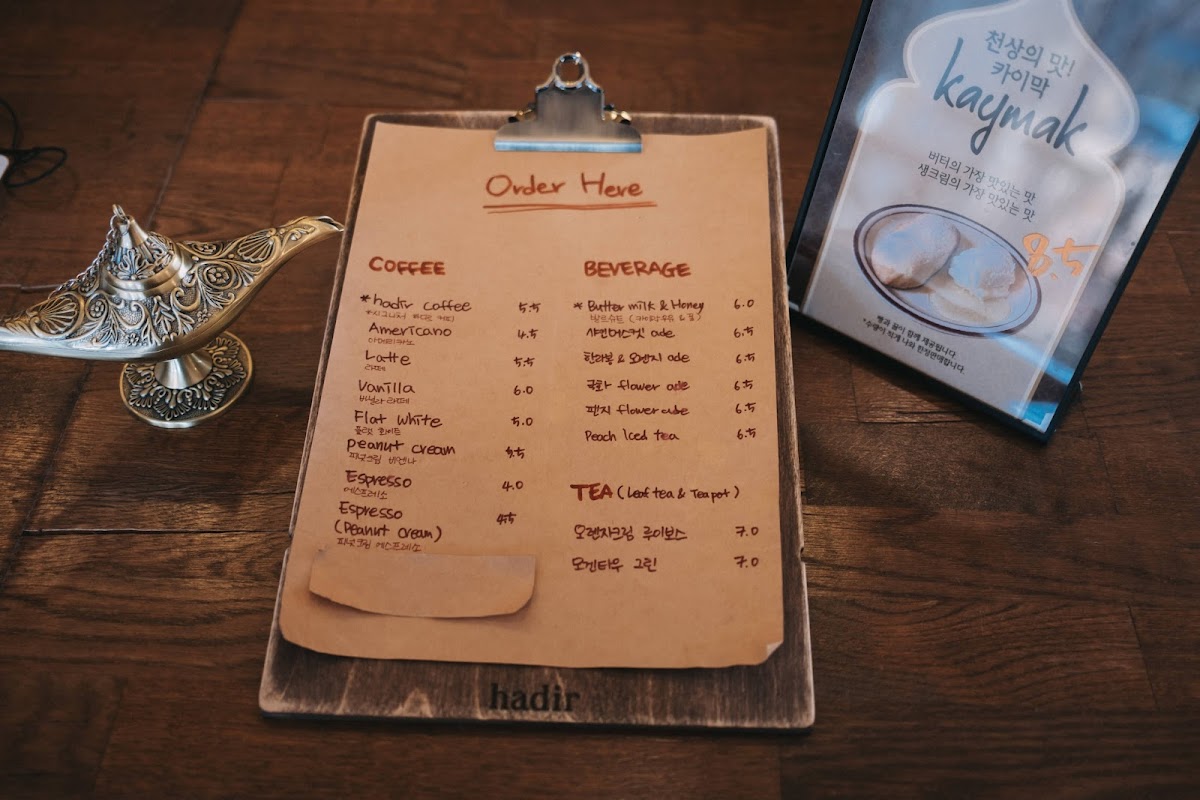 Order Here
COFFEE
*hadir coffee 5.5
*시그니처 하디르 커피
Americano 4.5
아메리카노
Latte 5.5
라떼
Vanilla 6.0
바닐라 라떼
Flat White 5.0
플랫 화이트
peanut cream 5.5
피넛크림 비엔나
Espresso 4.0
에스프레소
Espresso 4.5
(Peanut cream)
피넛크림 에스프레소
BEVERAGE
* Butter milk & Honey 6.0
샤인머스캣 ade 6.5
한라봉 & 오렌지 ade 6.5
국화 flower ade 6.5
팬지 flower ade 6.5
Peach Iced tea 6.5
TEA (Leaf tea & Teapot)
오렌지크림 루이보스 7.0
모겐타우 그린 7.0
hadir
천상의 맛!
카이막
kaymak
버터의 가장 맛있는 맛
생크림의 가장 맛있는 맛
8.5
빵과 꿀이 함께 제공됩니다
*수량이 적게 나와 한정판매합니다.